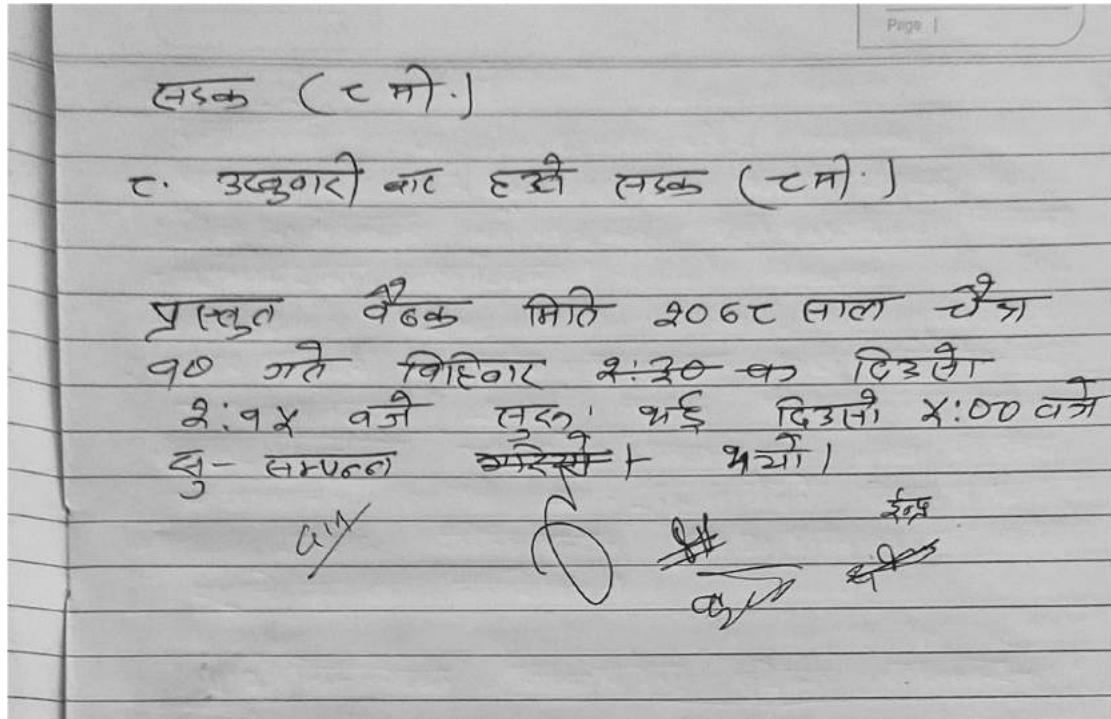 Page |
सडक (८ मी.)
८. उखुबारी बाट हुँदो सडक (८ मी.)
प्रस्तुत बैठक मिति २०७८ साल चैत्र
१७ गते बिहिवार २:३० का दिउसो
२:१५ बजे सुरू भई दिउसो ५:०० बजे
सु-सम्पन्न गरियो। भयो।
ईन्द्र